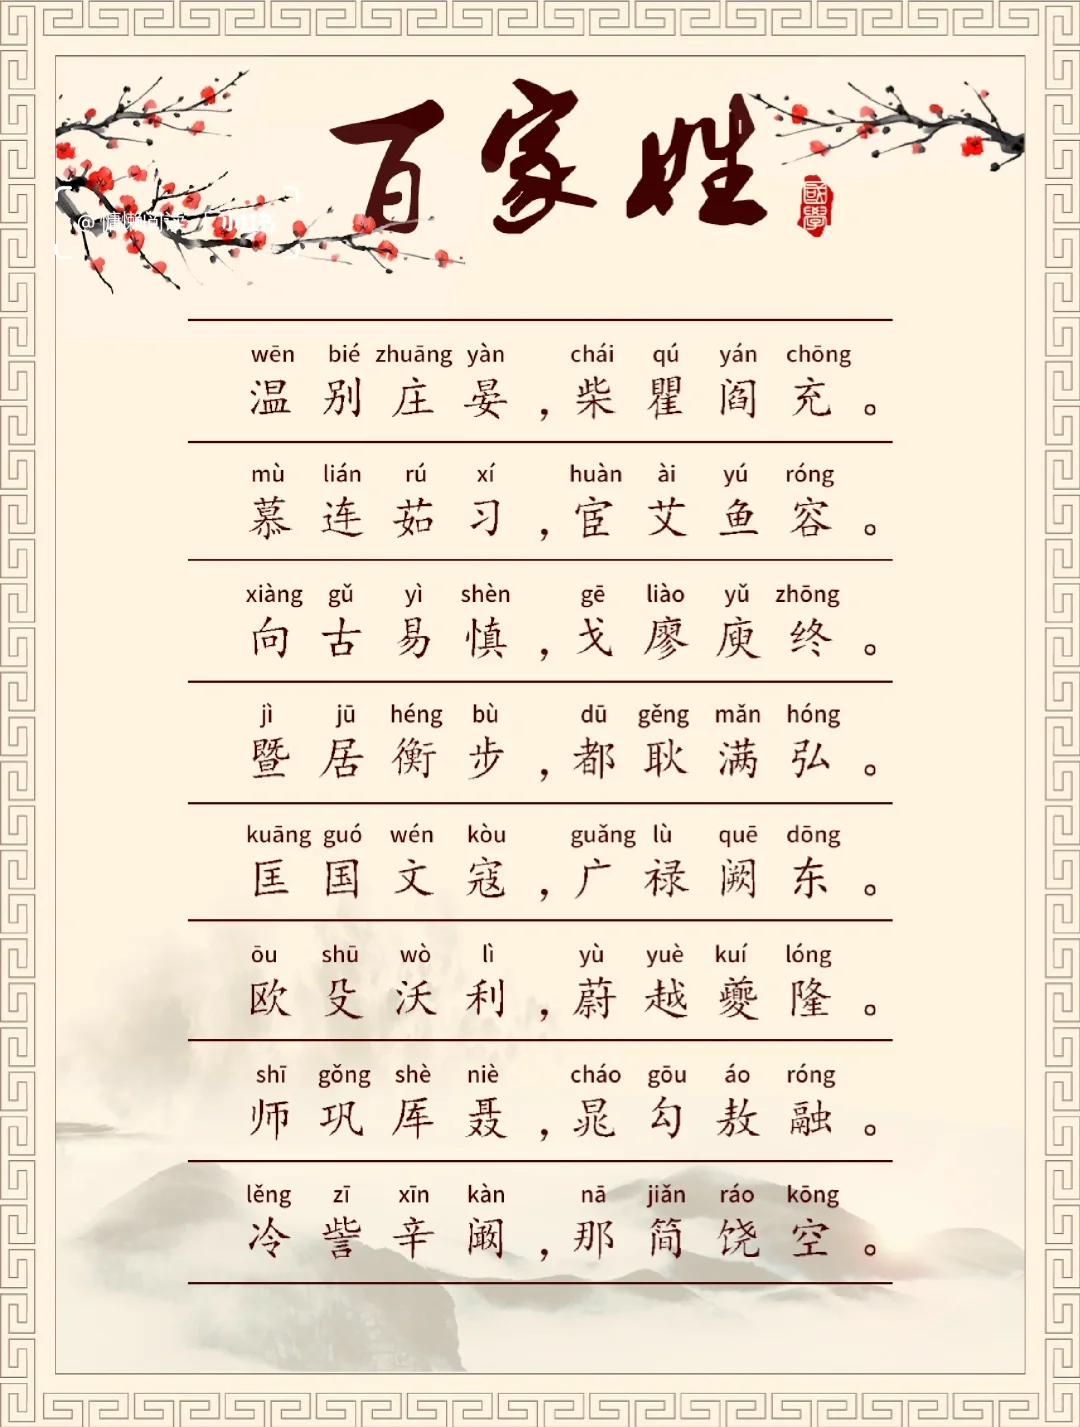 百家姓
國學
wēn bié zhuāng yàn chái qú yán chōng
温别庄晏，柴瞿阎充。
mù lián rú xí huàn ài yú róng
慕连茹习，宦艾鱼容。
xiàng gǔ yì shèn gē liào yǔ zhōng
向古易慎，戈廖庾终。
jì jū héng bù dū gěng mǎn hóng
暨居衡步，都耿满弘。
kuāng guó wén kòu guǎng lù quē dōng
匡国文寇，广禄阙东。
ōu shū wò lì yù yuè kuí lóng
欧殳沃利，蔚越夔隆。
shī gǒng shè niè cháo gōu áo róng
师巩厍聂，晁勾敖融。
lěng zī xīn kàn nā jiǎn ráo kōng
冷訾辛阚，那简饶空。